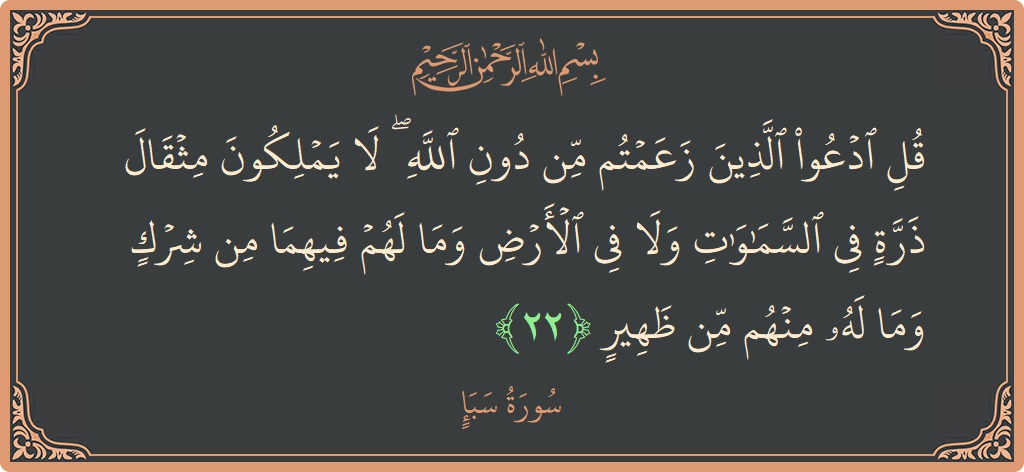 بِسْمِ اللَّهِ الرَّحْمَٰنِ الرَّحِيمِ
قُلِ ٱدۡعُواْ ٱلَّذِينَ زَعَمۡتُم مِّن دُونِ ٱللَّهِۖ لَا يَمۡلِكُونَ مِثۡقَالَ
ذَرَّةٖ فِي ٱلسَّمَٰوَٰتِ وَلَا فِي ٱلۡأَرۡضِ وَمَا لَهُمۡ فِيهِمَا مِن شِرۡكٖ
وَمَا لَهُۥ مِنۡهُم مِّن ظَهِيرٖ ﴿٢٢﴾
سُورَةُ سَبَإٖ